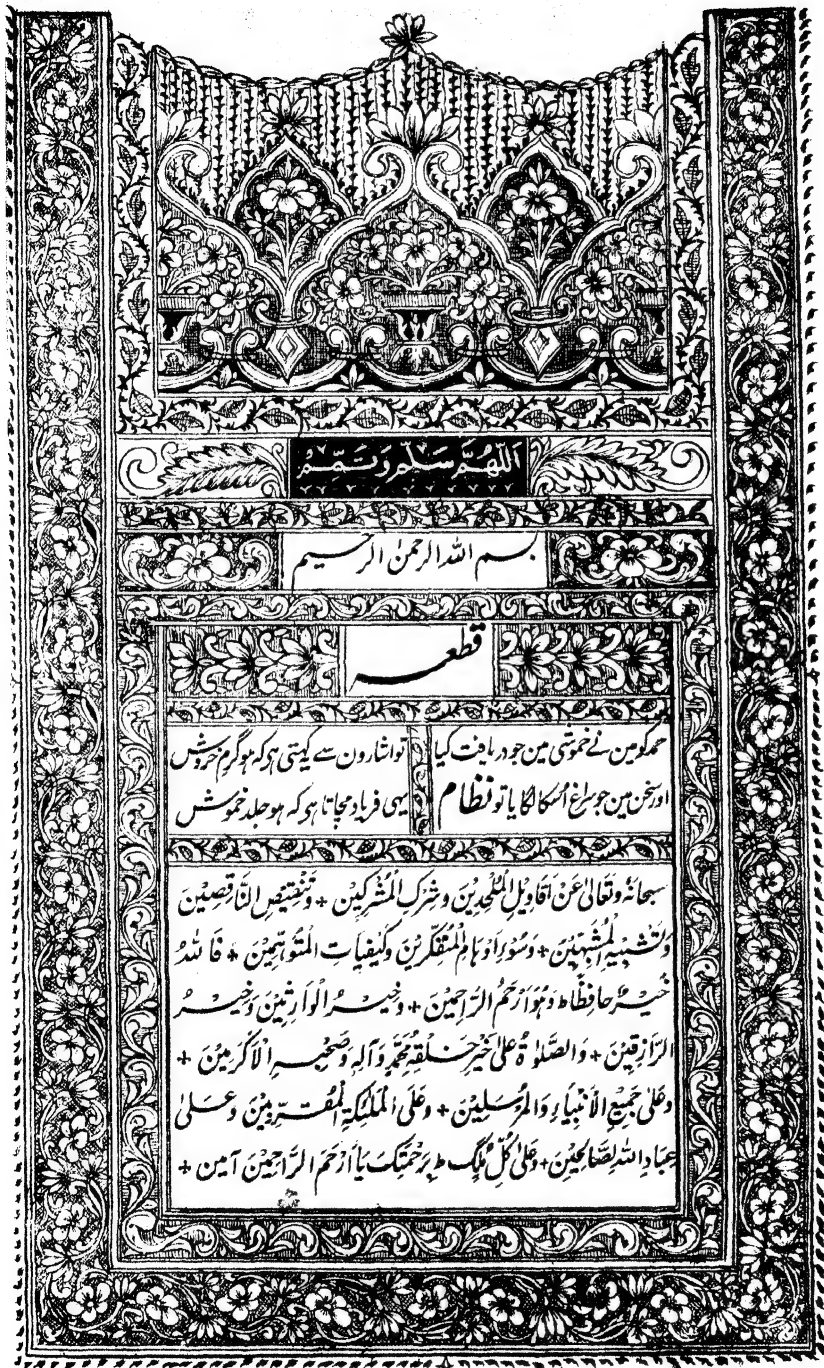 اَللّٰهُمَّ سَلِّم وَتَمِّم
بسم اللہ الرحمٰن الرحیم
قطعہ
حمد کو مین نے خموشی مین جو دریافت کیا تو اشارون سے کہتی ہر کہ ہو گرم خروش
اور سخن مین جو سراغ اُسکا لگایا تو نظام یہی فریاد مچاتا ہر کہ ہو جلد خموش
سبحانہٗ وتعالیٰ عَنْ اَقَاوِیْلِ الْمُلْحِدِیْنَ وشِرْکِ الْمُشْرِکِیْن + وَتَنْقِیْصِ النَّاقِصِیْنَ
وَتَشْبِیْہِ الْمُشَبِّہِیْنَ + وَسُوْرِ اَوْہَامِ الْمُتَفَکِّرِیْنَ وَکَیْفِیَاتِ الْمُتَوَہِّمِیْنَ + فَاللّٰہُ
خَیْرٌ حَافِظًا ط وَہُوَ اَرْحَمُ الرَّاحِمِیْنَ + وَخَیْرُ الْوَارِثِیْنَ وَخَیْرُ
الرَّازِقِیْنَ + وَالصَّلٰوۃُ عَلیٰ خَیْرِ خَلْقِہٖ مُحَمَّدٍ وَآلِہٖ وَصَحْبِہِ الْاَکْرَمِیْنَ +
وَعَلیٰ جَمِیْعِ الْاَنْبِیَاءِ وَالْمُرْسَلِیْنَ + وَعَلَی الْمَلٰئِکَۃِ الْمُقَرَّبِیْنَ وَعَلیٰ
عِبَادِ اللّٰہِ الصَّالِحِیْنَ + وَعَلیٰ کُلِّ مَلَکٍ ط بِرَحْمَتِکَ یَا اَرْحَمَ الرَّاحِمِیْنَ آمین +